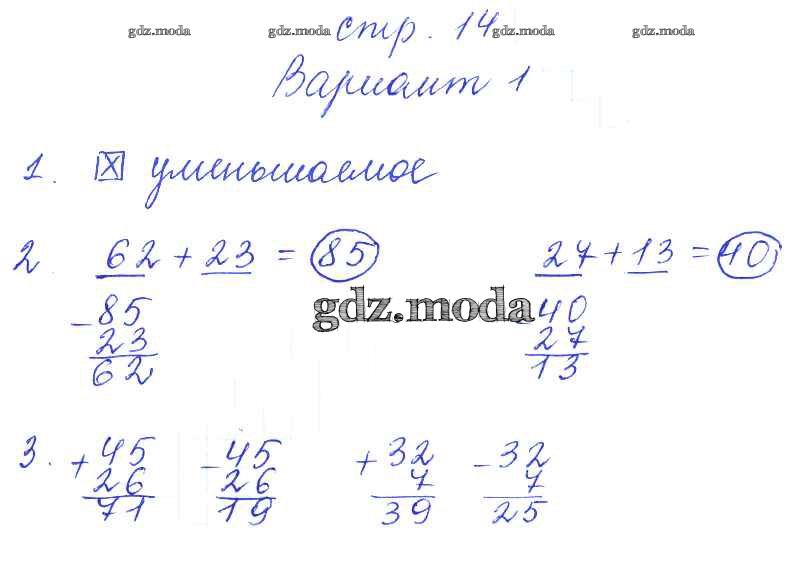 gdz.moda gdz.moda стр. 14 gdz.moda gdz.moda
Вариант 1
1. X уменьшаемое
2 62 + 23 = 85 27 + 13 = 40
gdz.moda
- 85 40
23 27
62 13
3. + 45 - 45 + 32 - 32
26 26 7 7
71 19 39 25